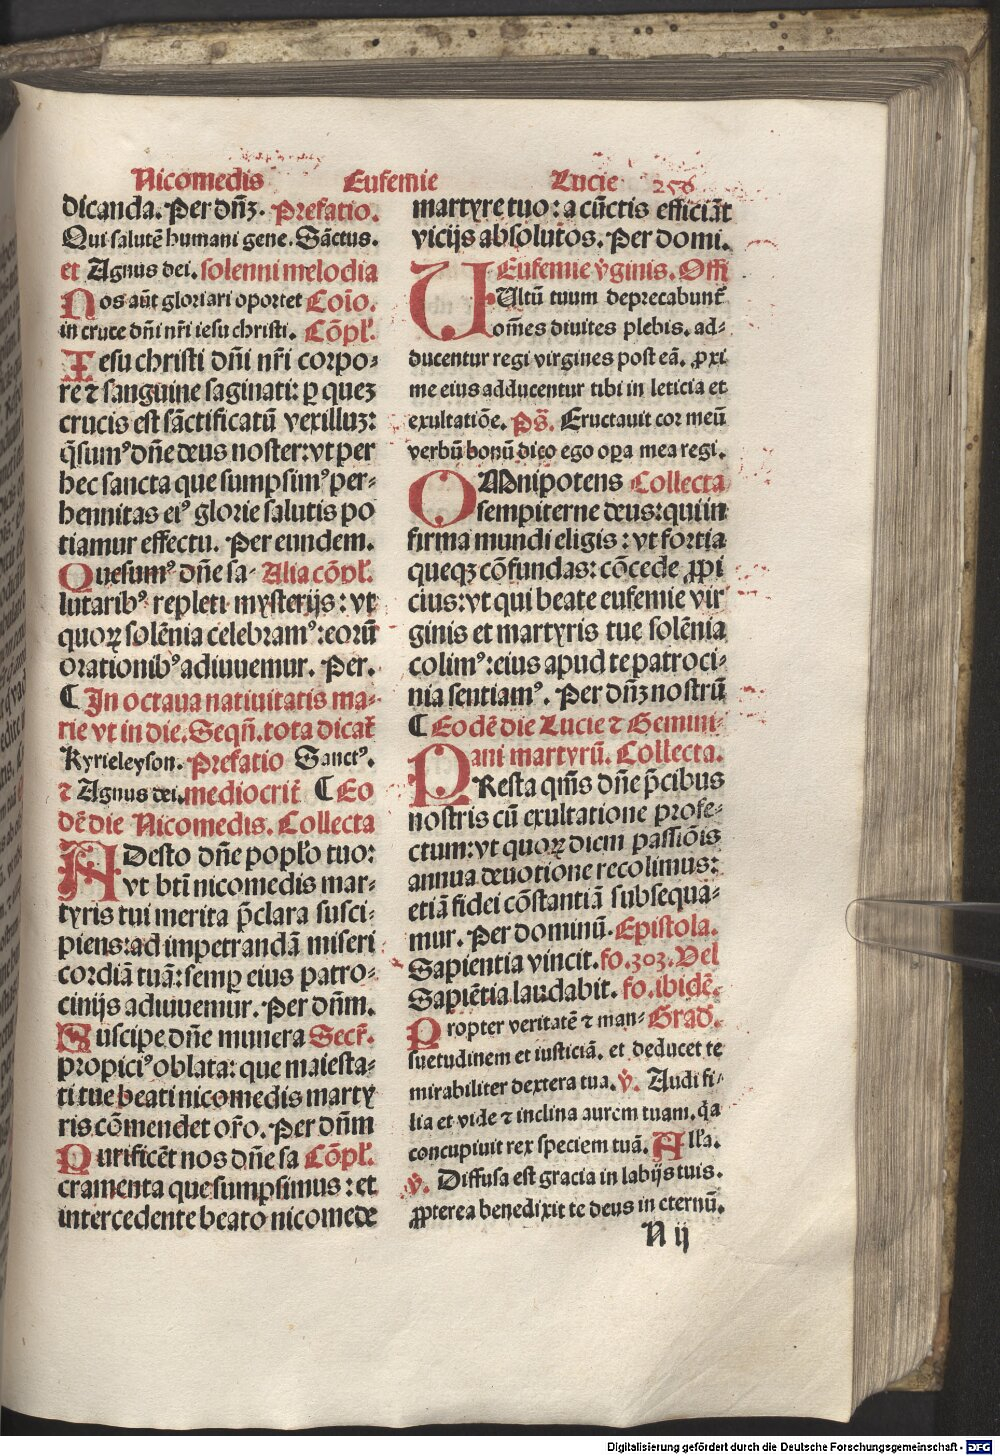 Nicomedis Eufemie Lucie 256
dicanda. Per dñꝫ. Prefatio.
Qui salutẽ humani gene. Sãctus.
et Agnus dei. solenni melodia
Nos aũt gloriari oportet Coĩo.
in cruce dñi nr̃i iesu christi. Cõpl̃.
Iesu christi dñi nr̃i corpo⸗
re ⁊ sanguine saginati: ꝑ quez
crucis est sãctificatũ vexilluꝫ:
q̃sumꝰ dñe deus noster: vt per
hec sancta que sumpsimꝰ per⸗
hennitas eiꝰ glorie salutis po
tiamur effectu. Per eundem.
Quesumꝰ dñe sa⸗ Alia cõpl̃.
lutaribꝰ repleti mysterijs: vt
quoꝝ solẽnia celebramꝰ: eorũ
orationibꝰ adiuuemur. Per.
¶ In octaua natiuitatis ma⸗
rie vt in die. Seqñ. tota dicat̃
Kyrieleyson. Prefatio Sanctꝰ.
⁊ Agnus dei. mediocrit̃ ¶ Eo
dẽ die Nicomedis. Collecta
ADesto dñe popl̃o tuo:
vt bt̃i nicomedis mar⸗
tyris tui merita p̃clara susci⸗
piens: ad impetrandã miseri
cordiã tuã: semꝑ eius patro⸗
cinijs adiuuemur. Per dñm.
Suscipe dñe munera Secr̃.
propiciꝰ oblata: que maiesta⸗
ti tue beati nicomedis marty
ris cõmendet or̃o. Per dñm
Purificẽt nos dñe sa Cõpl̃.
cramenta que sumpsimus: et
intercedente beato nicomede
martyre tuo: a cũctis efficiãt
vicijs absolutos. Per domi.
Eufemie v̈ginis. Offi
VUltũ tuum deprecabunt̃
om̃es diuites plebis. ad⸗
ducentur regi virgines post eã. ꝓxi
me eius adducentur tibi in leticia et
exultatiõe. Ps̃. Eructauit cor meũ
verbũ bonũ dico ego oꝑa mea regi.
OMnipotens Collecta
sempiterne deus: qui in
firma mundi eligis: vt fortia
queqꝫ cõfundas: cõcede ꝓpi
cius: vt qui beate eufemie vir
ginis et martyris tue solẽnia
colimꝰ: eius apud te patroci⸗
nia sentiamꝰ. Per dñꝫ nostrũ
¶ Eodẽ die Lucie ⁊ Gemini⸗
ani martyrũ. Collecta.
PResta qm̃s dñe p̃cibus
nostris cũ exultatione profe⸗
ctum: vt quoꝝ diem passiõis
annua deuotione recolimus:
etiã fidei cõstantiã subsequa⸗
mur. Per dominũ. Epistola.
Sapientia vincit. fo. 303. Vel
Sapiẽtia laudabit. fo. ibidẽ.
Propter veritatẽ ⁊ man⸗ Grad̃.
suetudinem et iusticiã. et deducet te
mirabiliter dextera tua. v̈. Audi fi⸗
lia et vide ⁊ inclina aurem tuam. q̃a
concupiuit rex speciem tuã. All̃a.
v̈. Diffusa est gracia in labijs tuis.
ꝓpterea benedixit te deus in eternũ.
N ij
Digitalisierung gefördert durch die Deutsche Forschungsgemeinschaft - DFG